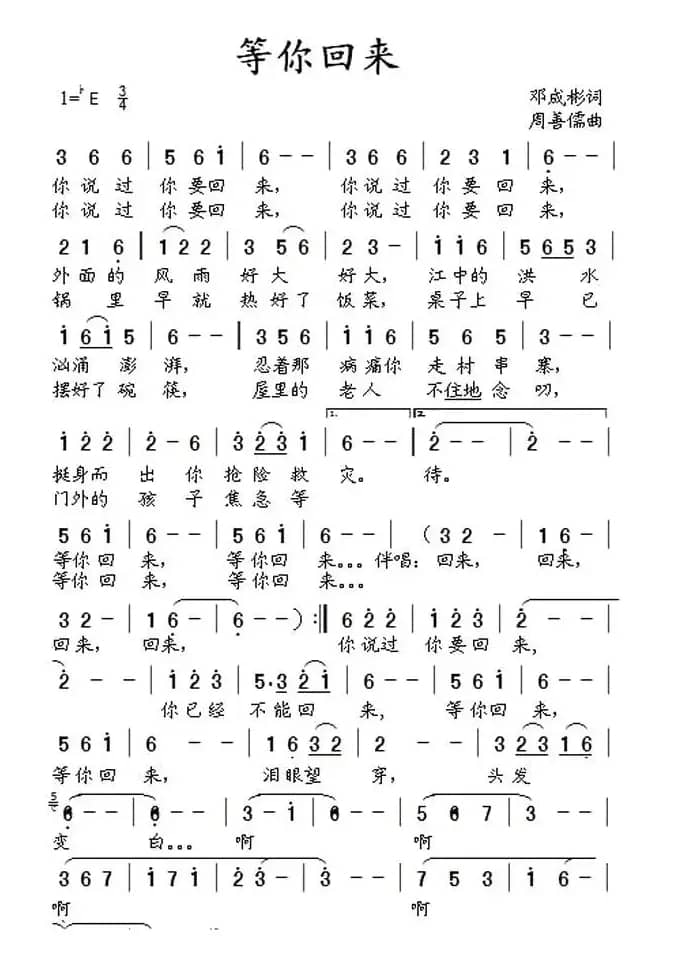 等你回来
1=♭E 3/4
邓成彬词
周善儒曲
3 6 6 | 5 6 i̇ | 6 - - | 3 6 6 | 2 3 1 | 6̣ - - |
你说过 你要回 来, 你说过 你要回 来,
你说过 你要回 来, 你说过 你要回 来,
2 1 6̣ | 1 2 2 | 3 5 6 | 2 3 - | i̇ i̇ 6 | 5 6 5 3 |
外面的 风雨好大 好大, 江中的 洪水
锅里早就热好了 饭菜, 桌子上 早已
i̇ 6 i̇ 5 | 6 - - | 3 5 6 | i̇ i̇ 6 | 5 6 5 | 3 - - |
汹涌澎湃, 忍着那 病痛你 走村串 寨,
摆好了碗 筷, 屋里的 老人 不住地念 叨,
1. 2.
i̇ 2̇ 2̇ | 2̇ - 6 | 3̇ 2̇ 3̇ i̇ | 6 - - | 2̇ - - | 2̇ - - |
挺身而 出你 抢险救 灾。 待。
门外的 孩子 焦急等
5 6 i̇ | 6 - - | 5 6 i̇ | 6 - - | (3 2 - | 1 6̣ - |
等你回 来, 等你回 来。。。伴唱:回来, 回来,
等你回 来, 等你回 来。。。
3 2 - | 1 6̣ - | 6̣ - - ) :‖ 6 2̇ 2̇ | i̇ 2̇ 3̇ | 2̇ - - |
回来, 回来, 你说过 你要回 来,
2̇ - - | i̇ 2̇ 3̇ | 5. 3 2̇ i̇ | 6 - - | 5 6 i̇ | 6 - - |
你已经 不能回 来, 等你回 来,
5 6 i̇ | 6 - - | 1 6̣ 3 2 | 2 - - | 3 2 3 1 6̣ |
等你回 来, 泪眼望 穿, 头发
5 6̣ - - | 6̣ - - | 3 - i̇ | 6 - - | 5 6 7 | 3 - - |
变 白。。。 啊 啊
3 6 7 | i̇ 7 i̇ | 2̇ 3̇ - | 3̇ - - | 7 5 3 | i̇ 6 - |
啊 啊